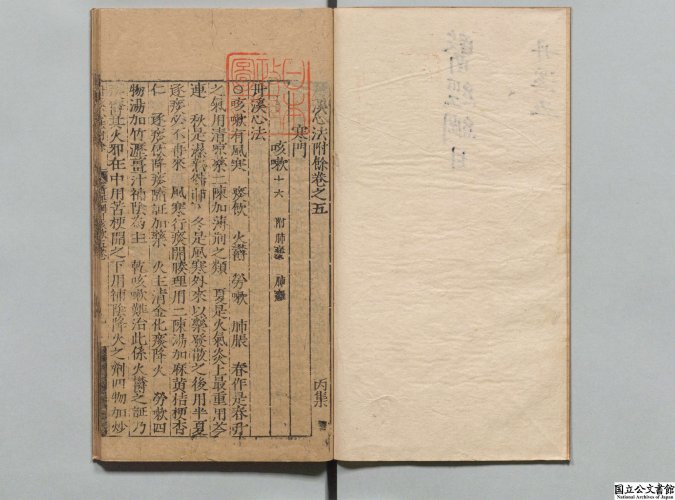 丹溪心法附餘卷之五
丙集
寒門
咳嗽十六 附肺痿 肺癰
丹溪心法
○咳嗽有風寒 痰飲 火鬱 勞嗽 肺脹 春作是春升
之氣用清涼藥二陳加薄荊之類 夏是火氣炎上最重用芩
連 秋是濕熱傷肺 冬是風寒外來以藥發散之後用半夏
逐痰必不再來 風寒行痰開腠理用二陳湯加麻黄桔梗杏
仁 逐痰飲降痰隨証加藥 火主清金化痰降火 勞嗽四
物湯加竹瀝薑汁補陰為主 乾咳嗽難治此係火鬱之証乃
火邪在中用苦梗開之下用補陰降火之劑四物加炒
国立公文書館
National Archives of Japan